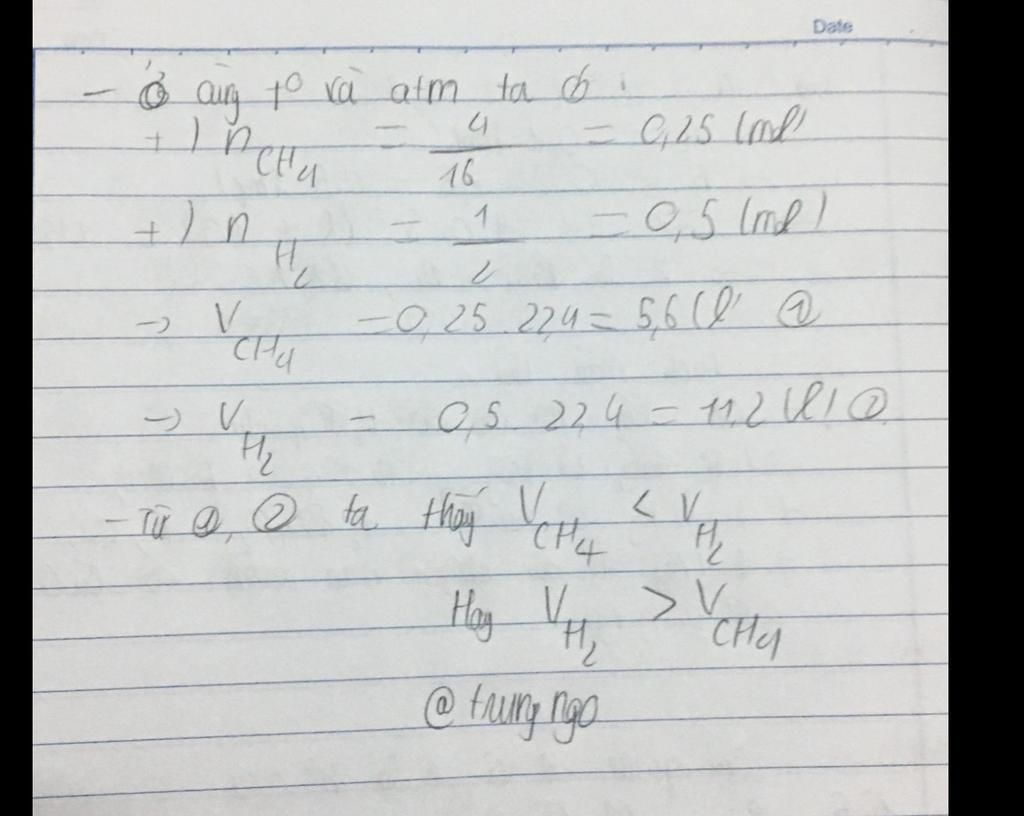 Date
- Ở cùng t° và atm ta có :
+) n CH4 = 4/16 = 0,25 (mol)
+) n H2 = 1/2 = 0,5 (mol)
→ V CH4 = 0,25 . 22,4 = 5,6 (l) ①
→ V H2 = 0,5 . 22,4 = 11,2 (l) ②
- Từ ①, ② ta thấy V CH4 < V H2
Hay V H2 > V CH4
@ trung ngo